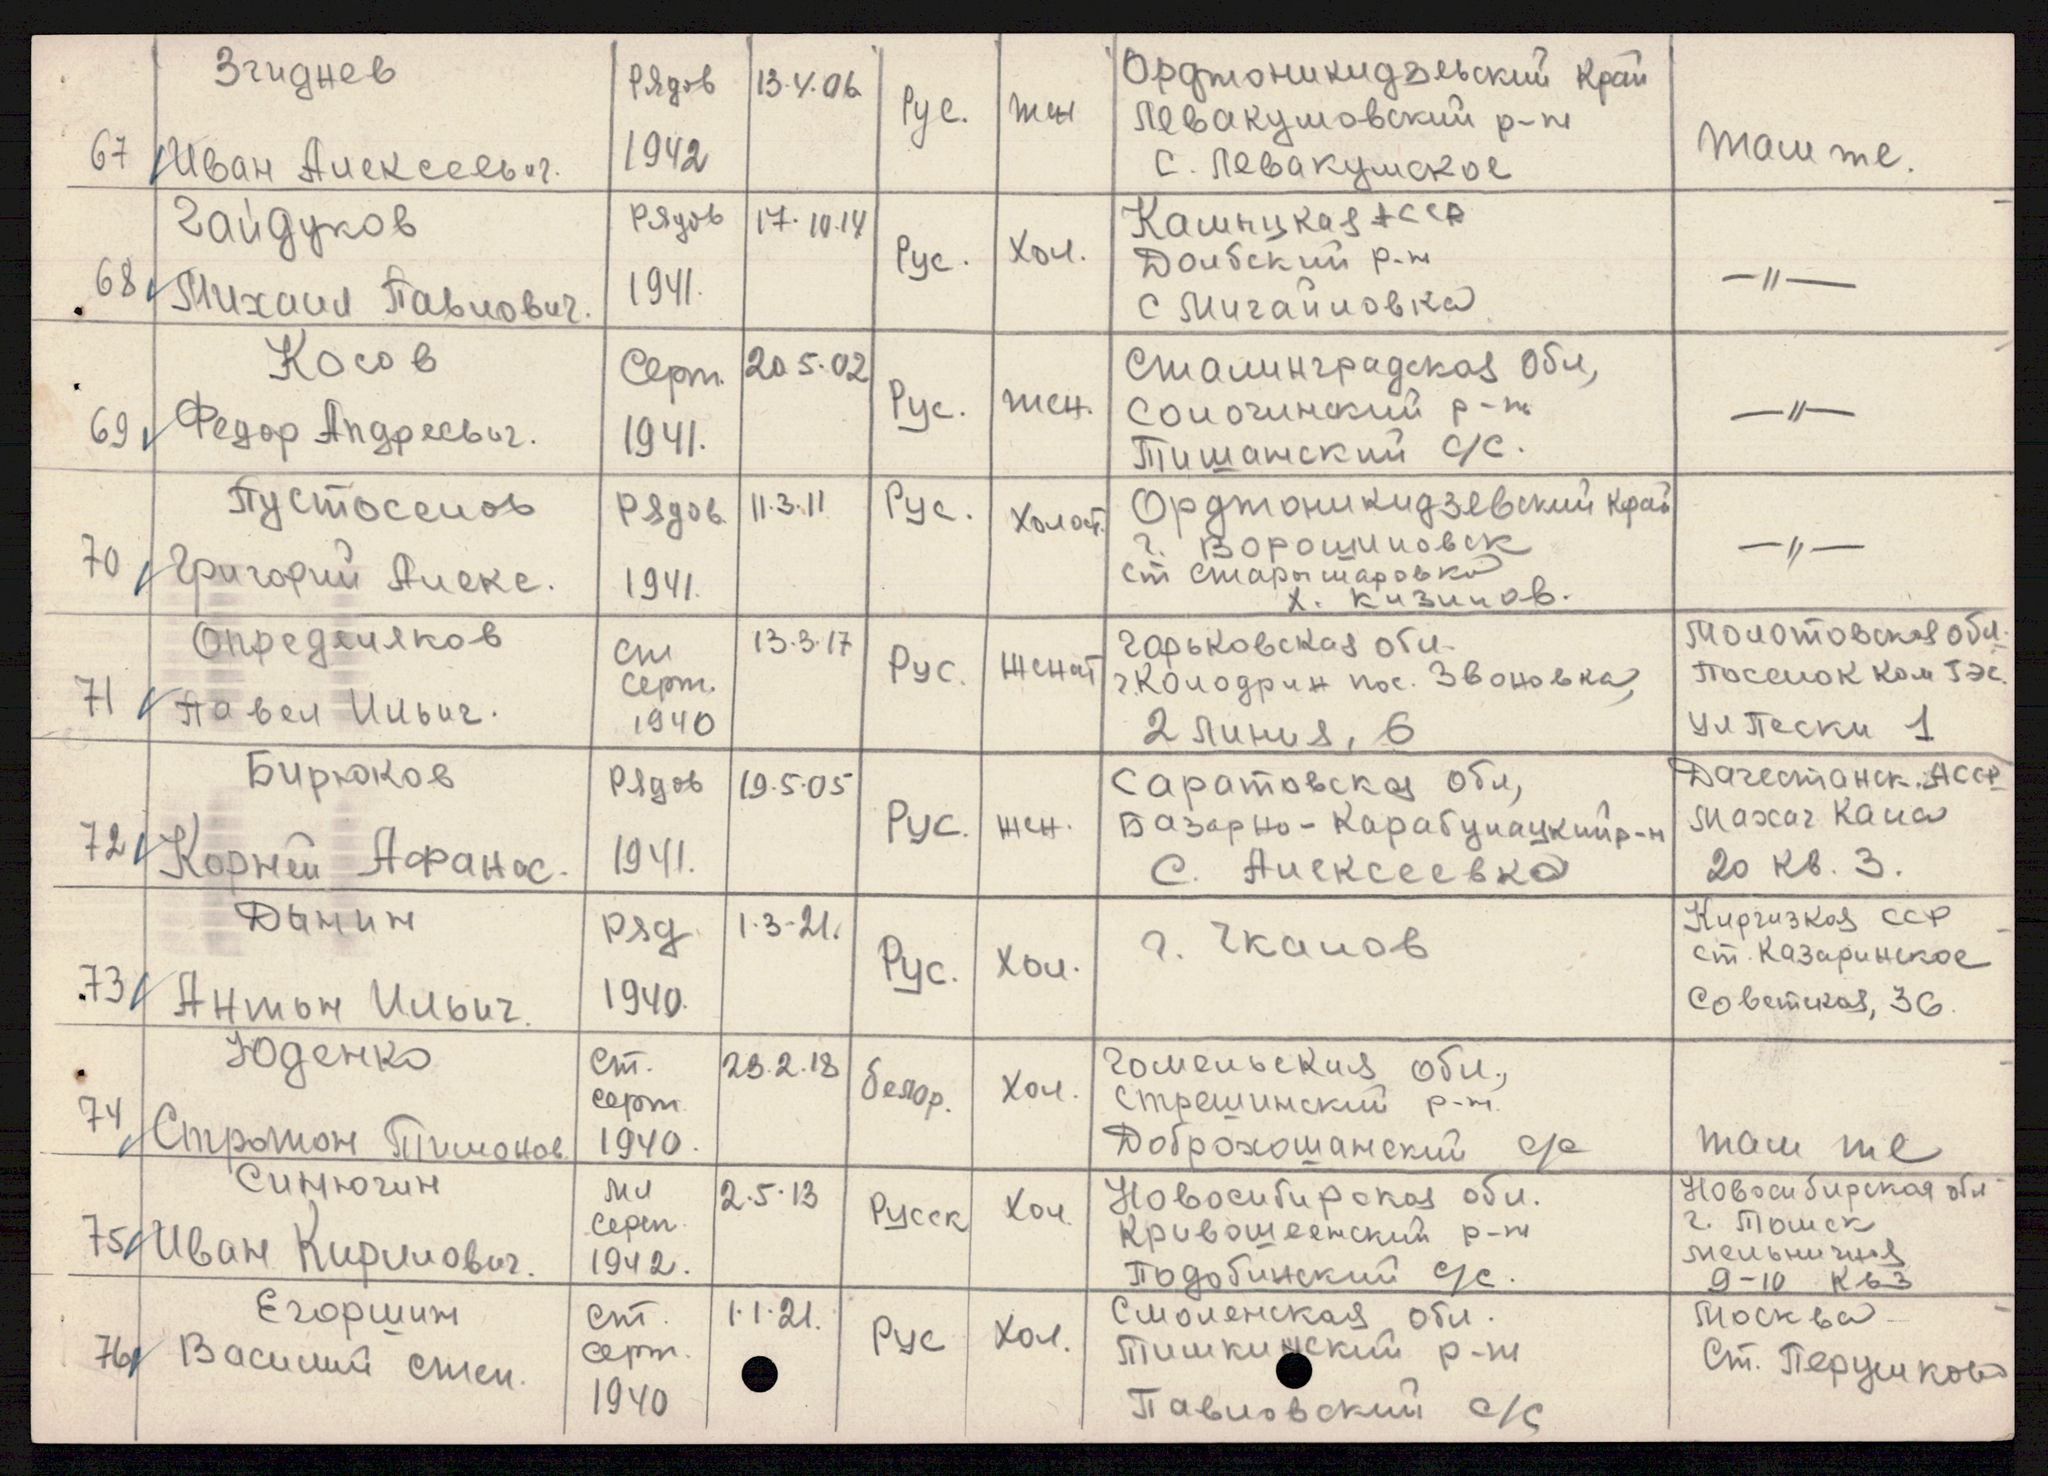 67 Згиднев Иван Алексеевич. Рядов 1942 13.4.06 Рус. жен Орджоникидзевский Край Левакумовский р-н С. Левакумское там же.
68 Гайдуков Михаил Павлович. Рядов 1941. 17.10.14 Рус. Хол. Калмыцкая АССР Долбский р-н С Михайловка —"—
69 Косов Федор Андреевич. Серж. 1941. 20.5.02 Рус. жен. Сталинградская Обл, Солочинский р-н Тишанский с/с. —"—
70 Пустоселов Григорий Алекс. Рядов 1941. 11.3.11 Рус. Холост. Орджоникидзевский Край г. Ворошиловск ст Старымаровка х. Кизилов. —"—
71 Определяков Павел Ильич. Ст серж. 1940 13.3.17 Рус. Женат Горьковская обл. г.Колодрин пос. Звоновка, 2 Линия, 6 Молотовская обл. Поселок Ком ГЭС. Ул Пески 1
72 Бирюков Корней Афанас. Рядов 1941. 19.5.05 Рус. жен. Саратовская Обл, Базарно-Карабулацкий р-н С. Алексеевка Дагестанск. АССР Махач Кала 20 Кв. 3.
73 Дынин Антон Ильич. Ряд. 1940. 1.3.21. Рус. Хол. г. Чкалов Киргизкая ССР ст. Казаринское Советская, 36.
74 Юденко Стротон Тимонов. Ст. серж. 1940. 23.2.18 белор. Хол. Гомельския обл., Стрешинский р-н. Доброхошанский с/с там же
75 Синюгин Иван Кирилович. Мл серж. 1942. 2.5.13 Русск Хол. Новосибирская обл. Кривошеенский р-н Подобинский с/с. Новосибирская обл г. Томск Мельничная 9-10 Кв3
76 Егоршин Василий Степ. Ст. серж. 1940 1.1.21. Рус Хол. Смоленская обл. Тишкинский р-н Павловский с/с Москва Ст. Перушково